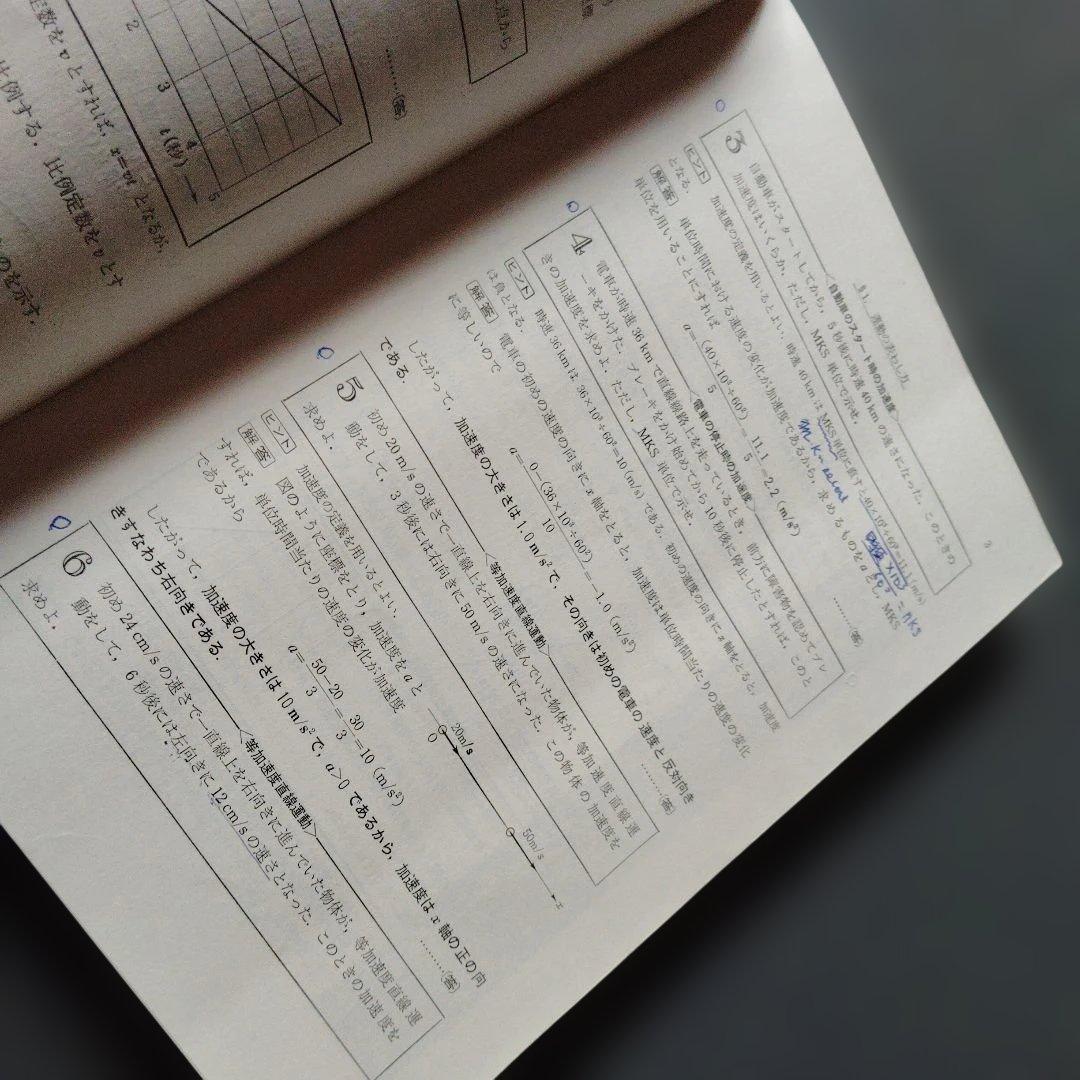 2
3
4
5
t(秒)
……(答)
定数を v とすれば, x=vt となるが,
比例する. 比例定数を v とす
のを示す.
§1. 運動の表わし方
3
3
〈自動車のスタート時の加速度〉
自動車がスタートしてから, 5 秒後に時速 40 km の速さになった. このときの
加速度はいくらか. ただし, MKS 単位で示せ.
ヒント 加速度の定義を用いるとよい. 時速 40 km は MKS 単位に直すと 40×10³÷60²=11.1 (m/s)
となる.
m k-second
= MKS
解答 単位時間における速度の変化が加速度であるから, 求めるものを a とし, MKS
単位を用いることにすれば
a=(40×10³÷60²)/5=11.1/5=2.2 (m/s²)
……(答)
4
〈電車の停止時の加速度〉
電車が時速 36 km で直線線路上を走っているとき, 前方に障害物を認めてブレ
ーキをかけた. ブレーキをかけ始めてから 10 秒後に停止したとすれば, このと
きの加速度を求めよ. ただし, MKS 単位で示せ.
ヒント 時速 36 km は 36×10³÷60²=10 (m/s) である. 初めの速度の向きに x 軸をとると, 加速度
は負となる.
解答 電車の初めの速度の向きに x 軸をとると, 加速度は単位時間当たりの速度の変化
に等しいので
a=0-(36×10³÷60²)/10=-1.0 (m/s²)
したがって, 加速度の大きさは 1.0 m/s² で, その向きは初めの電車の速度と反対向き
である.
……(答)
5
〈等加速度直線運動〉
初め 20 m/s の速さで一直線上を右向きに進んでいた物体が, 等加速度直線運
動をして, 3 秒後には右向きに 50 m/s の速さになった. この物体の加速度を
求めよ.
ヒント 加速度の定義を用いるとよい.
解答 図のように座標をとり, 加速度を a と
すれば, 単位時間当たりの速度の変化が加速度
であるから
20m/s
50m/s
0
x
a=50-20/3=30/3=10 (m/s²)
したがって, 加速度の大きさは 10 m/s² で, a>0 であるから, 加速度は x 軸の正の向
きすなわち右向きである.
……(答)
6
〈等加速度直線運動〉
初め 24 cm/s の速さで一直線上を右向きに進んでいた物体が, 等加速度直線運
動をして, 6 秒後には左向きに 12 cm/s の速さとなった. このときの加速度を
求めよ.